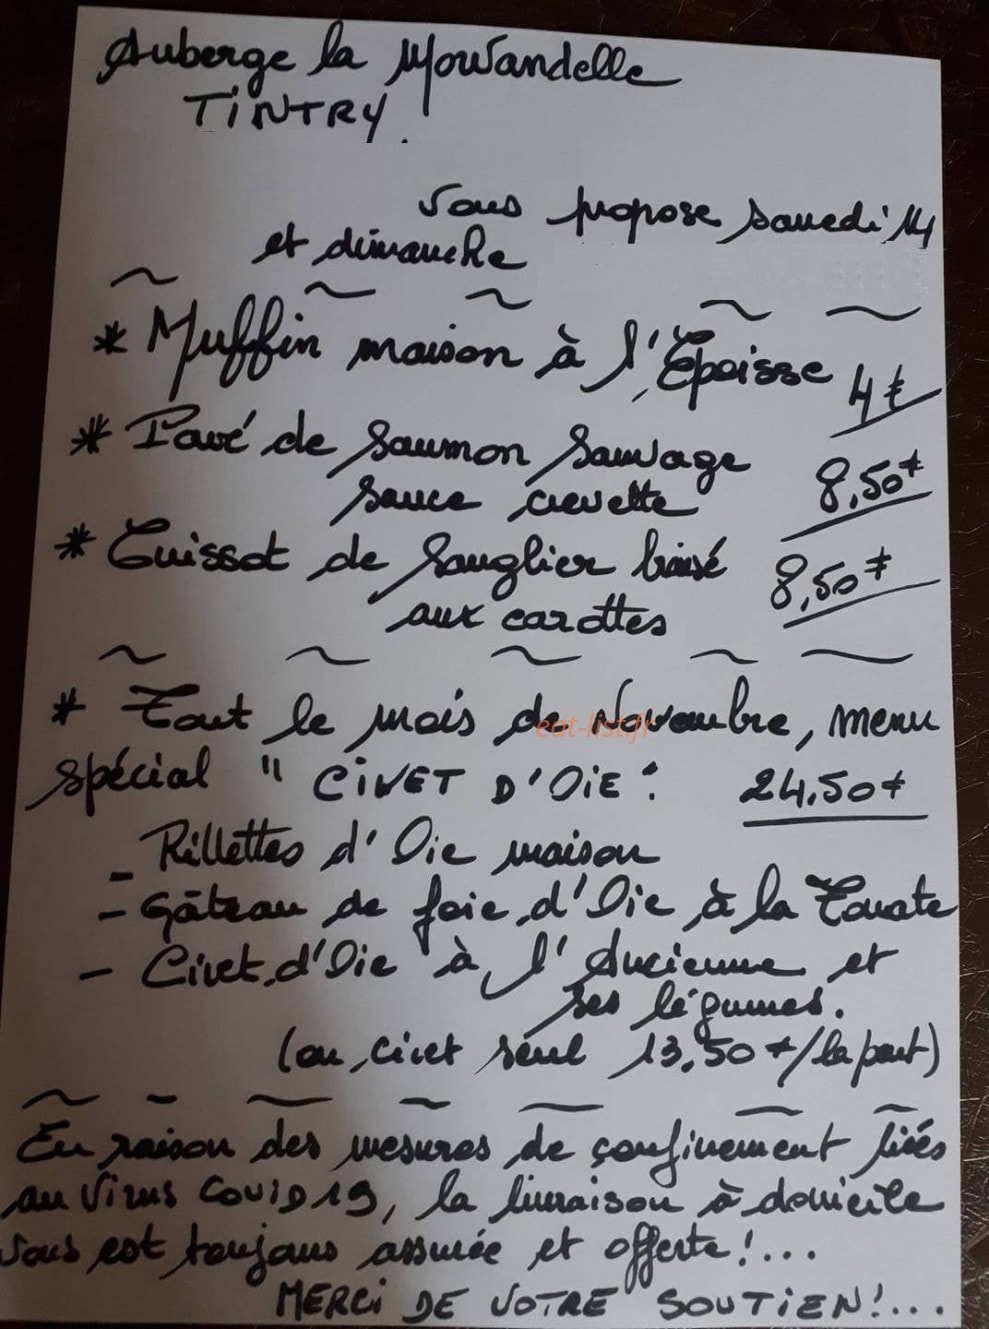 Auberge la Morvandelle
TINTRY.
vous propose samedi 14
et dimanche
* Muffin maison à l'Epoisse 4€
* Pavé de saumon sauvage
sauce crevette 8,50€
* Cuissot de sanglier braisé
aux carottes 8,50€
* Tout le mois de Novembre, menu
spécial " CIVET D'OIE " 24,50€
eat-list.fr
- Rillettes d'Oie maison
- Gâteau de foie d'Oie à la Tomate
- Civet d'Oie à l'Ancienne et
ses légumes.
(ou civet seul 13,50€/la part)
En raison des mesures de confinement liées
au virus COVID 19, la livraison à domicile
vous est toujours assurée et offerte!...
MERCI DE VOTRE SOUTIEN!...